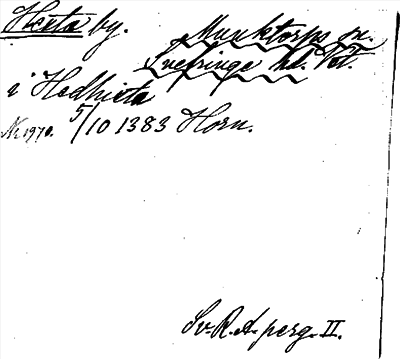 Hesta by. Munktorps sn.
Snefringe hd. Vst.
i Hedhista
N. 1970. 5/10 1383 Horn.
Sv. R. A. perg. II.